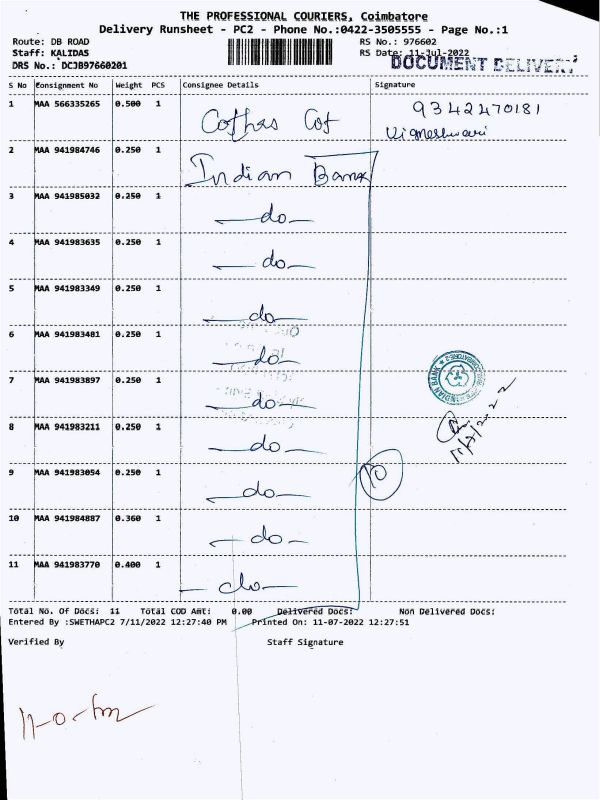 THE PROFESSIONAL COURIERS, Coimbatore
Delivery Runsheet - PC2 - Phone No.:0422-3505555 - Page No.:1
Route: DB ROAD
RS No.: 976602
Staff: KALIDAS
RS Date: 11-Jul-2022
DRS No.: DCJB97660201
DOCUMENT DELIVERY
S No Consignment No Weight PCS Consignee Details Signature
1 MAA 566335265 0.500 1 Cothas Cof 9342470181
Vigneshwari
2 MAA 941984746 0.250 1 Indian Bank
3 MAA 941985032 0.250 1 —do—
4 MAA 941983635 0.250 1 —do—
5 MAA 941983349 0.250 1 —do—
6 MAA 941983481 0.250 1 —do—
7 MAA 941983897 0.250 1 —do—
INDIAN BANK
8 MAA 941983211 0.250 1 —do—
11/7/2022
9 MAA 941983054 0.250 1 —do— 10
10 MAA 941984887 0.360 1 —do—
11 MAA 941983770 0.400 1 —do—
Total No. Of Docs: 11 Total COD Amt: 0.00 Delivered Docs: Non Delivered Docs:
Entered By :SWETHAPC2 7/11/2022 12:27:40 PM Printed On: 11-07-2022 12:27:51
Verified By Staff Signature